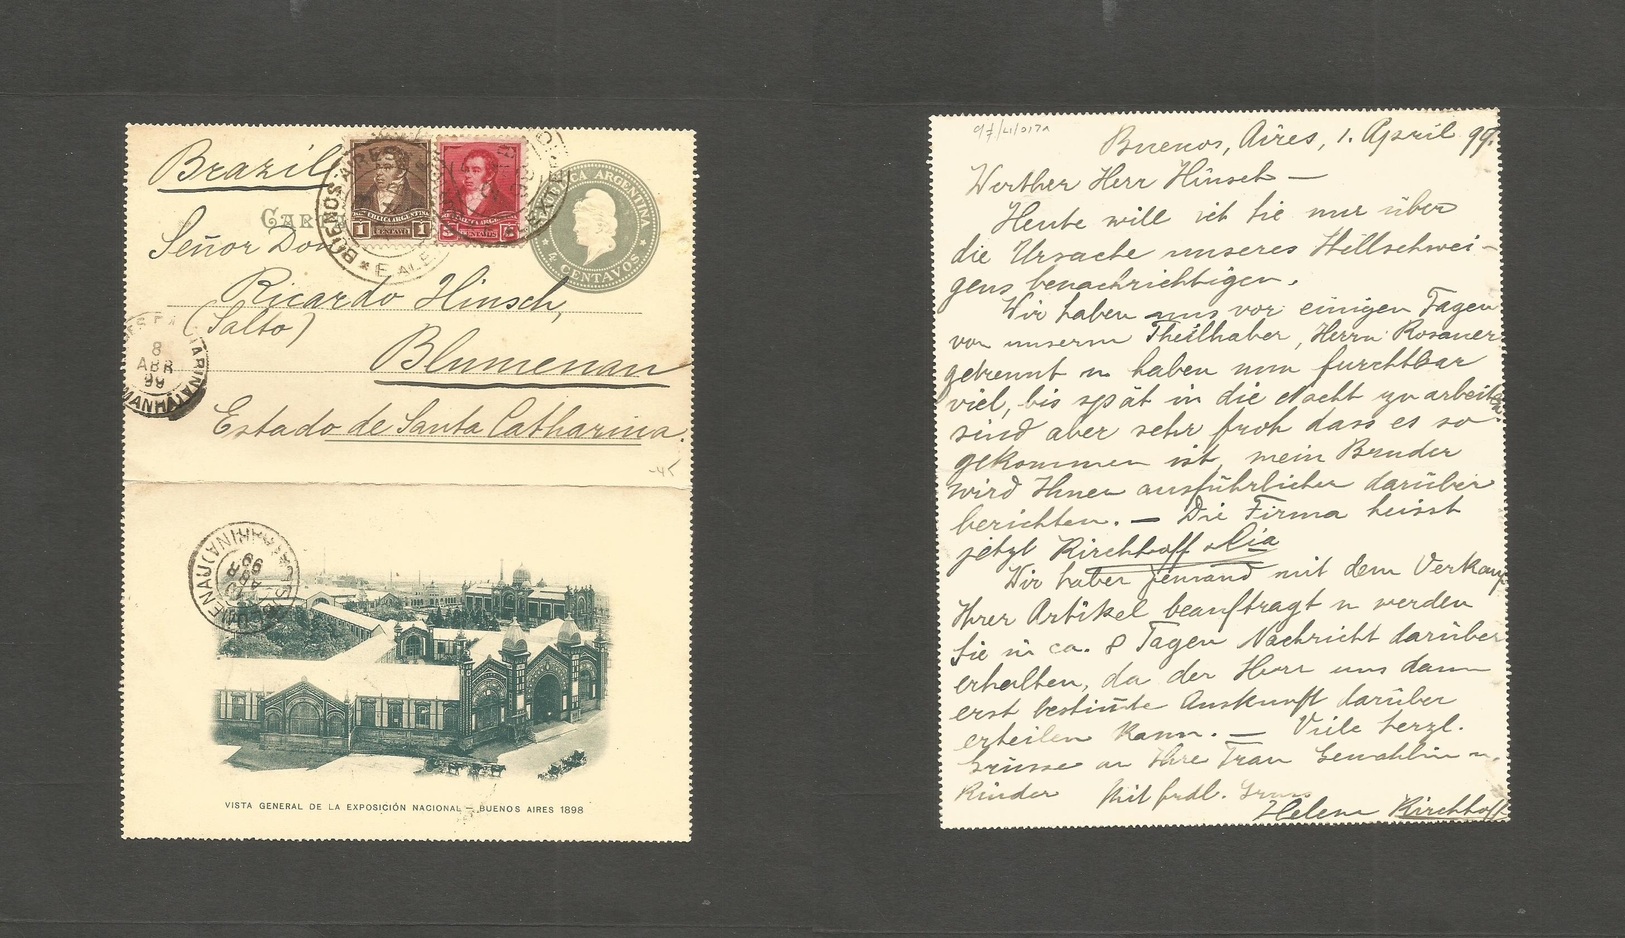 Brazil
CARTA
REPUBLICA ARGENTINA
4 CENTAVOS
1 CENTAVO 1
BUENOS AIRES
Señor Don
Ricardo Hinsch,
(Salto)
Blumenau
Estado de Santa Catharina.
8
ABR
99
MANHÃ
-45
BLUMENAU (STA CATHARINA)
ABR
99
VISTA GENERAL DE LA EXPOSICIÓN NACIONAL – BUENOS AIRES 1898
Buenos, Aires, 1. April 99.
Werther Herr Hinsch —
Heute will ich Sie nur über
die Ursache unseres Stillschwei-
gens benachrichtigen.
Wir haben uns vor einigen Tagen
von unserm Theilhaber, Herrn Rosauer
getrennt u haben nun furchtbar
viel, bis spät in die Nacht zu arbeiten
sind aber sehr froh dass es so
gekommen ist, mein Bruder
wird Ihnen ausführlicher darüber
berichten. — Die Firma heisst
jetzt Kirchhoff & Cia
Wir haben jemand mit dem Verkauf
Ihrer Artikel beauftragt u werden
Sie in ca. 8 Tagen Nachricht darüber
erhalten, da der Herr uns dann
erst bestimte Auskunft darüber
erteilen kann. — Viele herzl.
Grüsse an Ihre Frau Gemahlin u.
Kinder Mit frdl. Gruss
Helene Kirchhoff